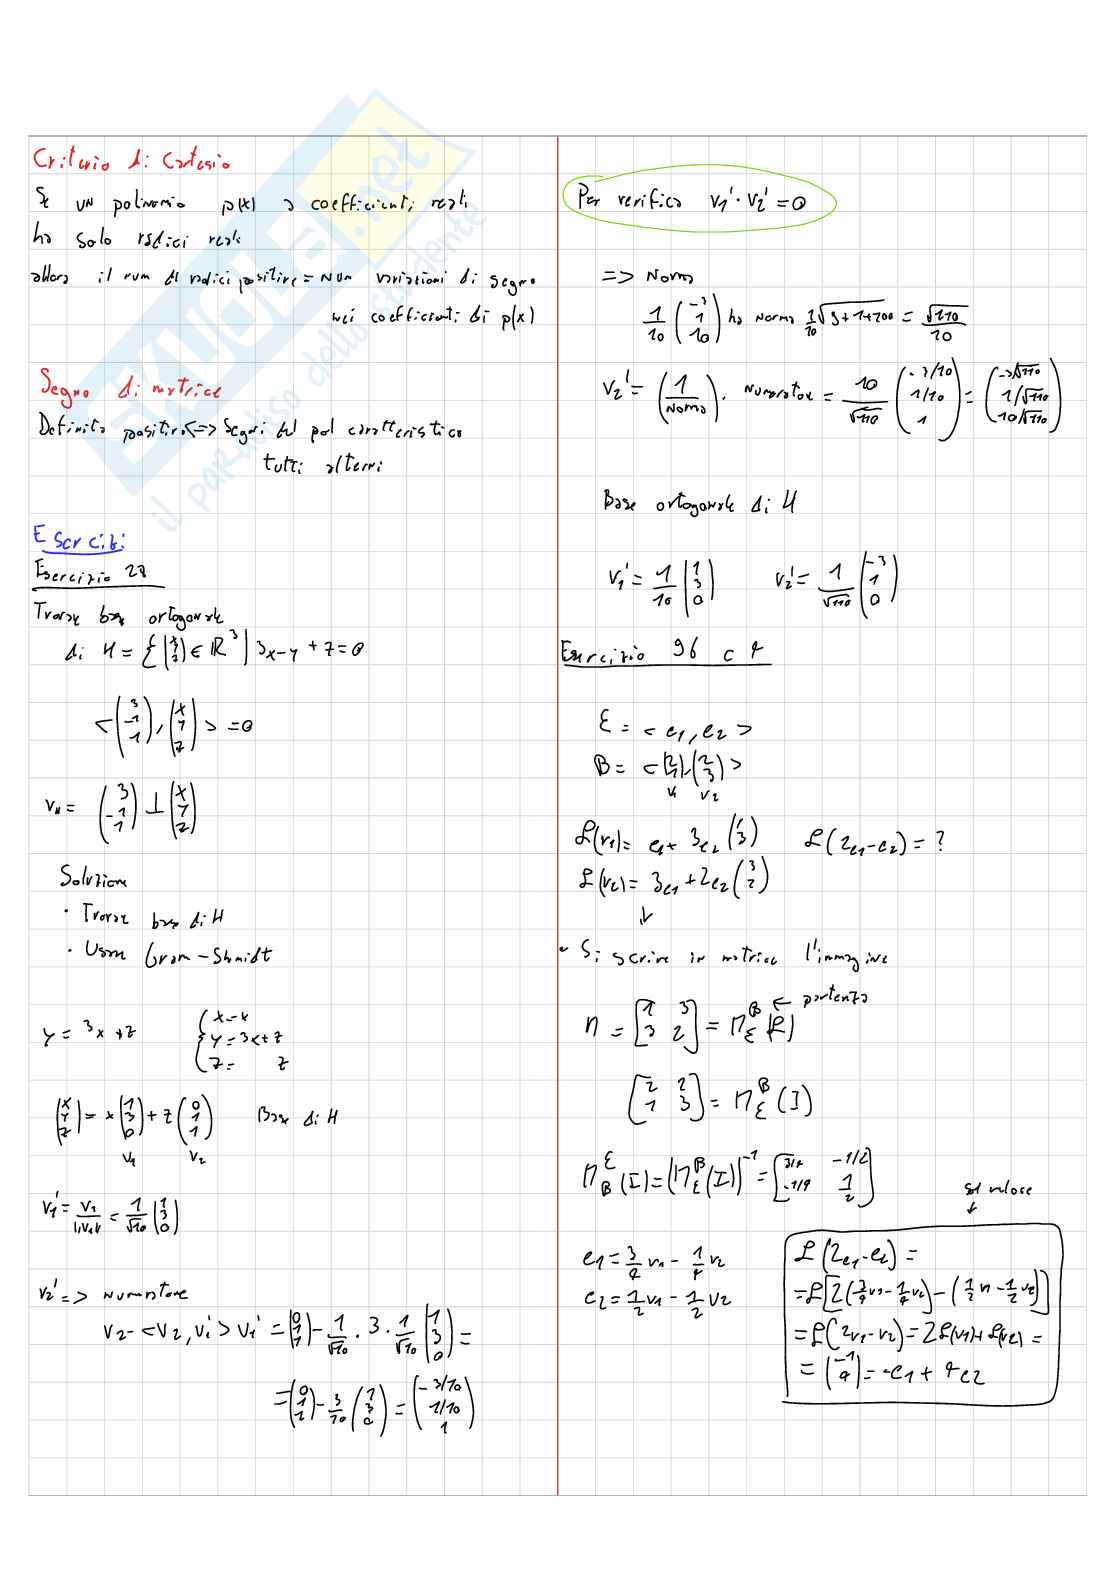 Criterio di Cartesio
Se un polinomio p(x) a coefficienti reali
ha solo radici reali
allora il num di radici positive = num variazioni di segno
nei coefficienti di p(x)
Segno di matrice
Definita positiva <=> Segni del pol caratteristico
tutti alterni
Esercizi
Esercizio 28
Trovare base ortogonale
di H = { (x y z) ∈ R^3 | 3x - y + z = 0
< (3 -1 1), (x y z) > = 0
v_H = (3 -1 1) ⊥ (x y z)
Soluzione
· Trovare base di H
· Usare Gram-Shmidt
y = 3x + z
{ x = x
y = 3x + z
z = z
(x y z) = x (1 3 0) + z (0 1 1) Base di H
v1 v2
v1' = v1/||v1|| = 1/√10 (1 3 0)
v2' => Numeratore
v2 - <v2, v1'> v1' = (0 1 1) - 1/√10 · 3 · 1/√10 (1 3 0) =
= (0 1 1) - 3/10 (1 3 0) = (-3/10 1/10 1)
Per verifica v1' · v2' = 0
=> Norma
1/10 (-3 1 10) ha norma 1/10 √9+1+100 = √110/10
v2' = (1/Norma) · Numeratore = 10/√110 (-3/10 1/10 1) = (-3/√110 1/√110 10/√110)
Base ortogonale di H
v1' = 1/10 (1 3 0) v2' = 1/√110 (-3 1 0)
Esercizio 96 c 4
E = < e1, e2 >
B = < (2 1), (2 3) >
v1 v2
L(v1) = e1 + 3e2 (1 3) L(2e1 - e2) = ?
L(v2) = 3e1 + 2e2 (3 2)
↓
• Si scrive in matrice l'immagine
M = [1 3 3 2] = M_E^B (L) ← partenza
[2 2 1 3] = M_E^B (I)
M_B^E (I) = (M_E^B (I))^-1 = [3/4 -1/2 -1/4 1/2]
e1 = 3/4 v1 - 1/4 v2
e2 = 1/2 v1 - 1/2 v2
↓
L(2e1 - e2) =
= L[2(3/4 v1 - 1/4 v2) - (1/2 v1 - 1/2 v2)]
= L(2v1 - v2) = 2L(v1) + L(v2) =
= (-1 4) = -e1 + 4e2
SKUOLA.net
il paradiso dello studente